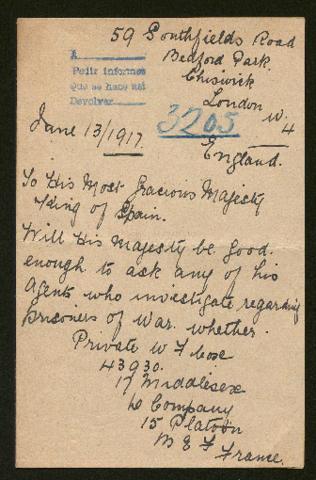 59 Southfields Road
Bedford Park
Chiswick
London
W.
4
England.
A
Pedir informes
Que se hace así
Devolver
3205
June 13/1917.
To His Most Gracious Majesty
King of Spain.
Will His Majesty be good
enough to ask any of his
Agents who investigate regarding
Prisoners of War. whether.
Private W F
43930.
17 Middlesex
Company
15 Platoon
B E F
France.